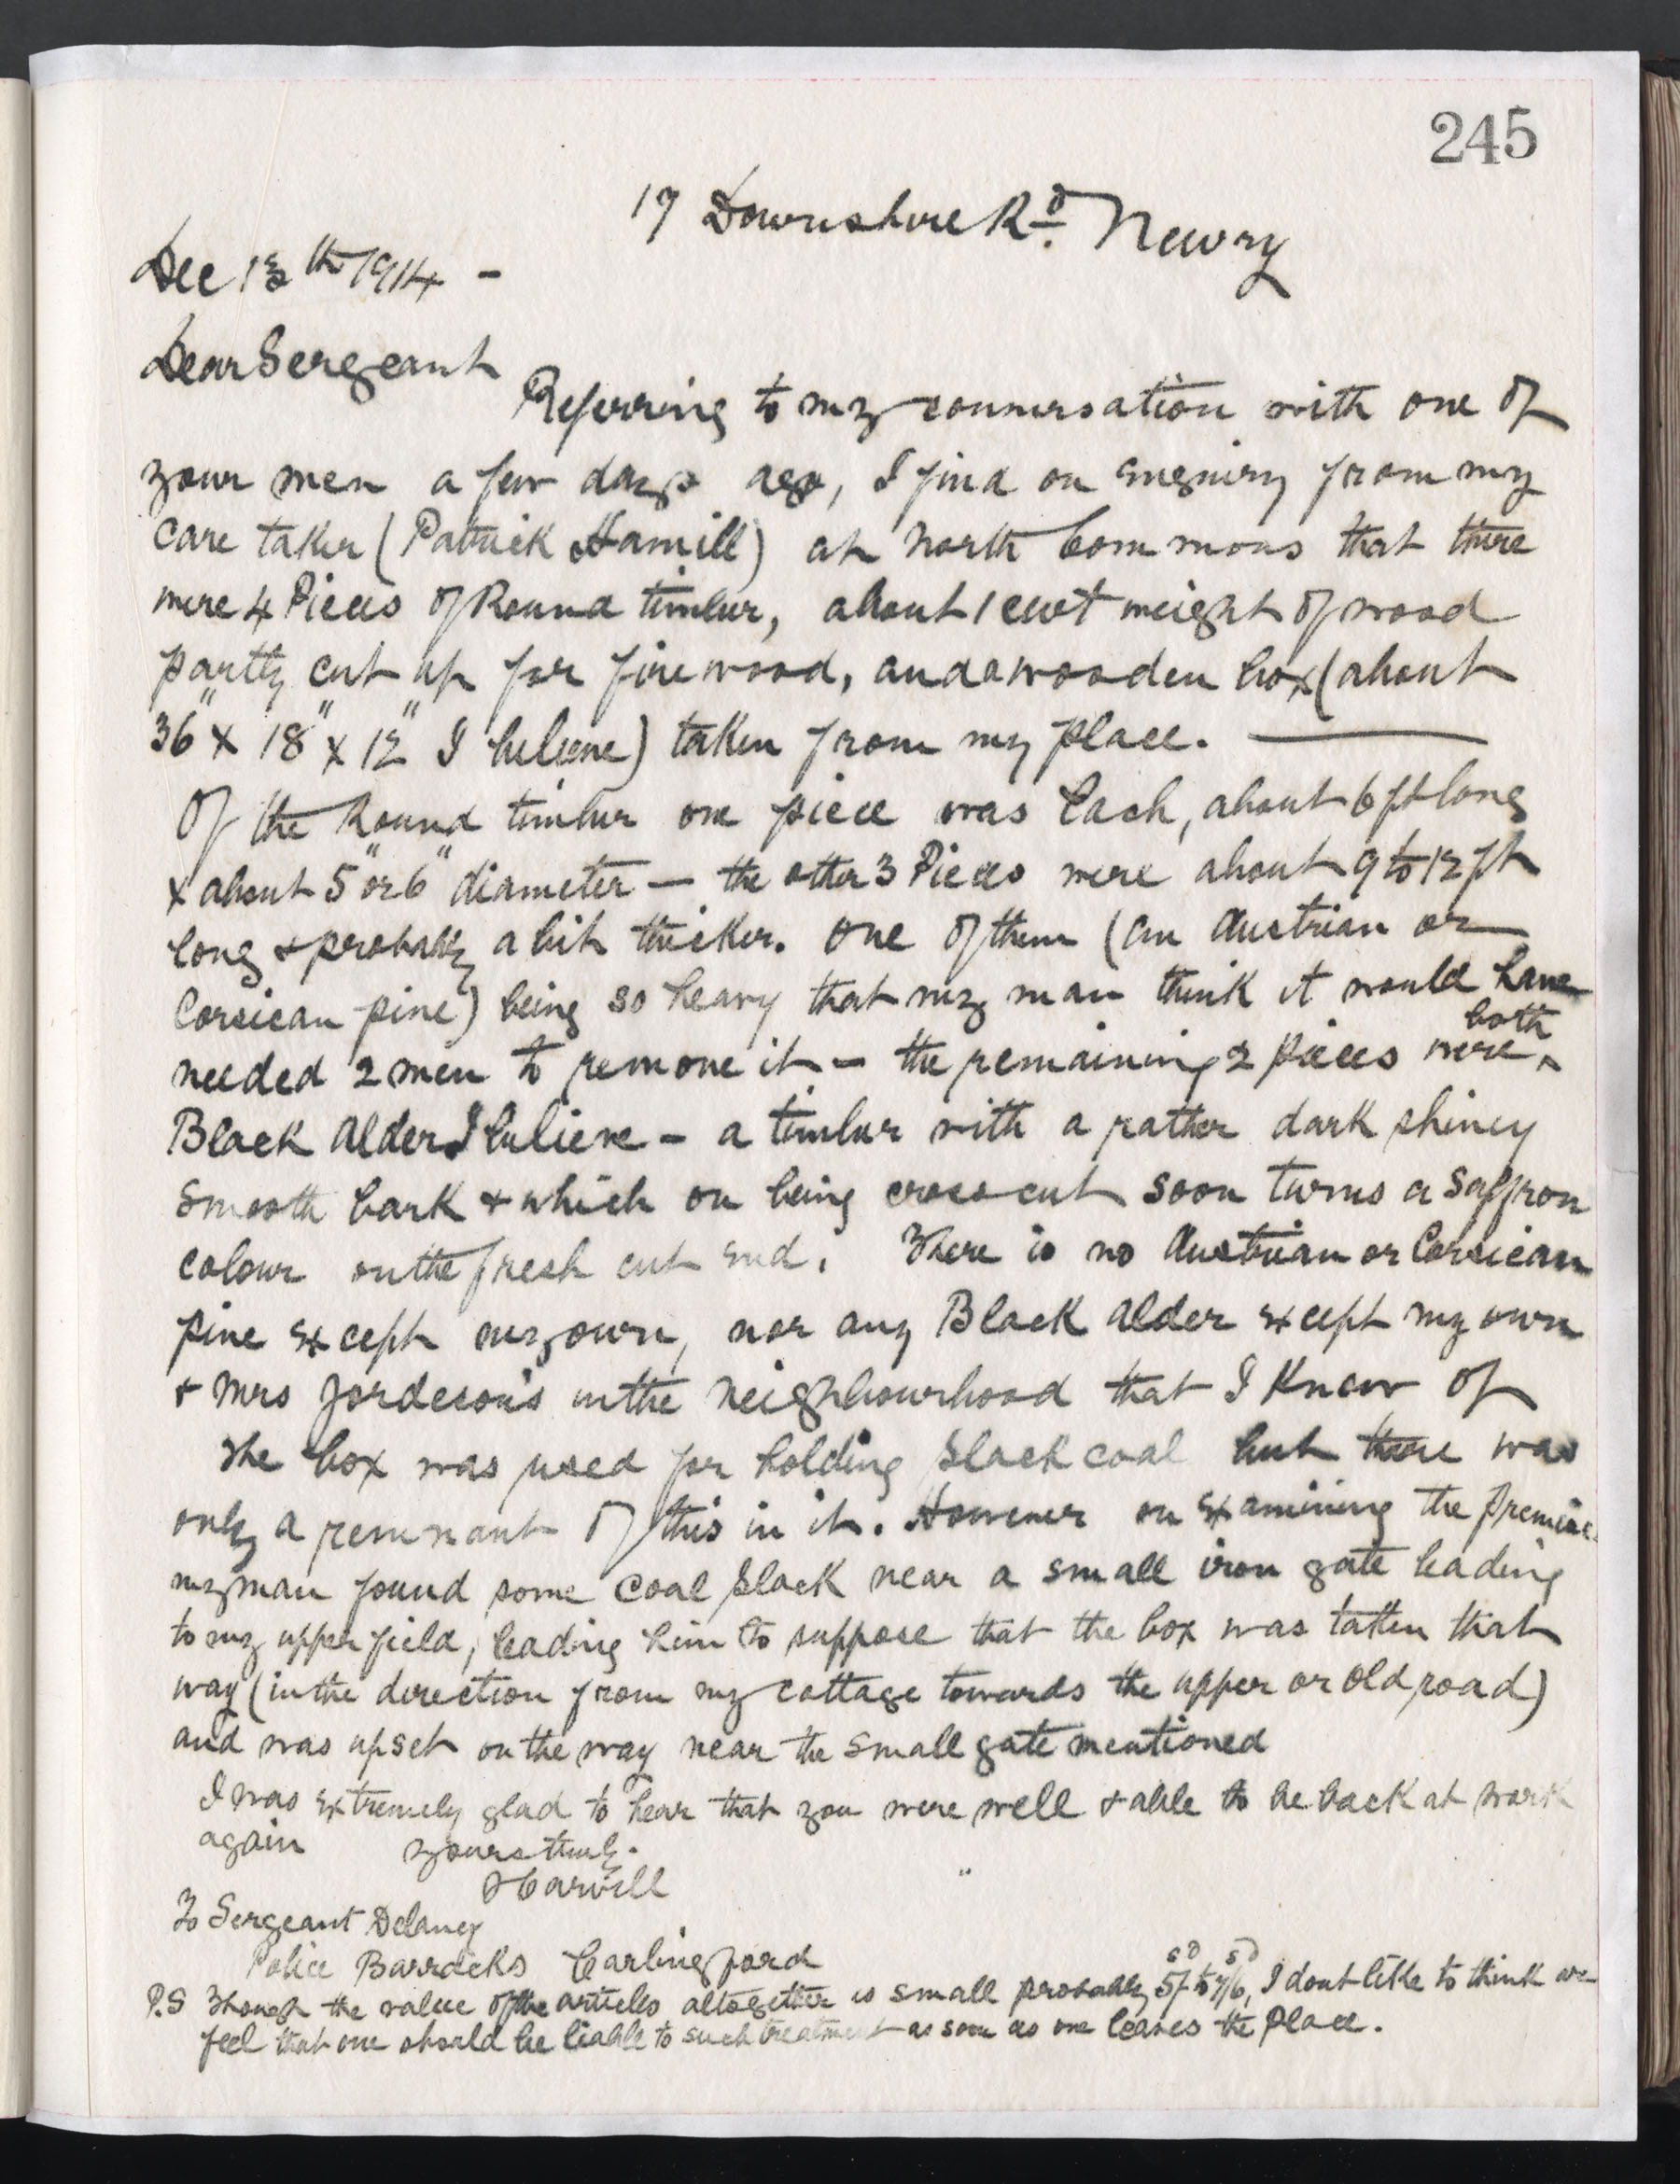 245
17 Downshire Rd. Newry
Dec 13th 1914 -
Dear Sergeant
Referring to my conversation with one of
your men a few days ago, I find on enquiry from my
care taker (Patrick Hamill) at North Commons that there
were 4 Pieces of Round timber, about 1 cwt weight of wood
partly cut up for firewood, and a wooden box (about
36" x 18" x 12" I believe) taken from my place. ———
Of the Round timber one piece was Larch, about 6 ft long
x about 5" or 6" diameter — the other 3 Pieces were about 9 to 12 ft
long & probably a bit thicker. One of them (an Austrian or
Corsican pine) being so heavy that my man think it would have
needed 2 men to remove it – the remaining 2 pieces were both
Black Alder I believe – a timber with a rather dark shiney
smooth bark & which on being cross cut soon turns a saffron
colour on the fresh cut end. There is no Austrian or Corsican
pine except my own, nor any Black Alder except my own
& Mrs Jordeson's in the neighbourhood that I know of
The box was used for holding slack coal but there was
only a remnant of this in it. However on examining the premises
my man found some coal slack near a small iron gate leading
to my upper field, leading him to suppose that the box was taken that
way (in the direction from my cottage towards the upper or old road)
and was upset on the way near the small gate mentioned
I was extremely glad to hear that you were well & able to be back at work
again yours truly.
H Carvill
To Sergeant Delaney
Police Barracks Carlingford
P.S Though the value of the articles altogether is small probably 5/- to 7/6, I dont like to think or
feel that one should be liable to such treatment as soon as one leaves the place.